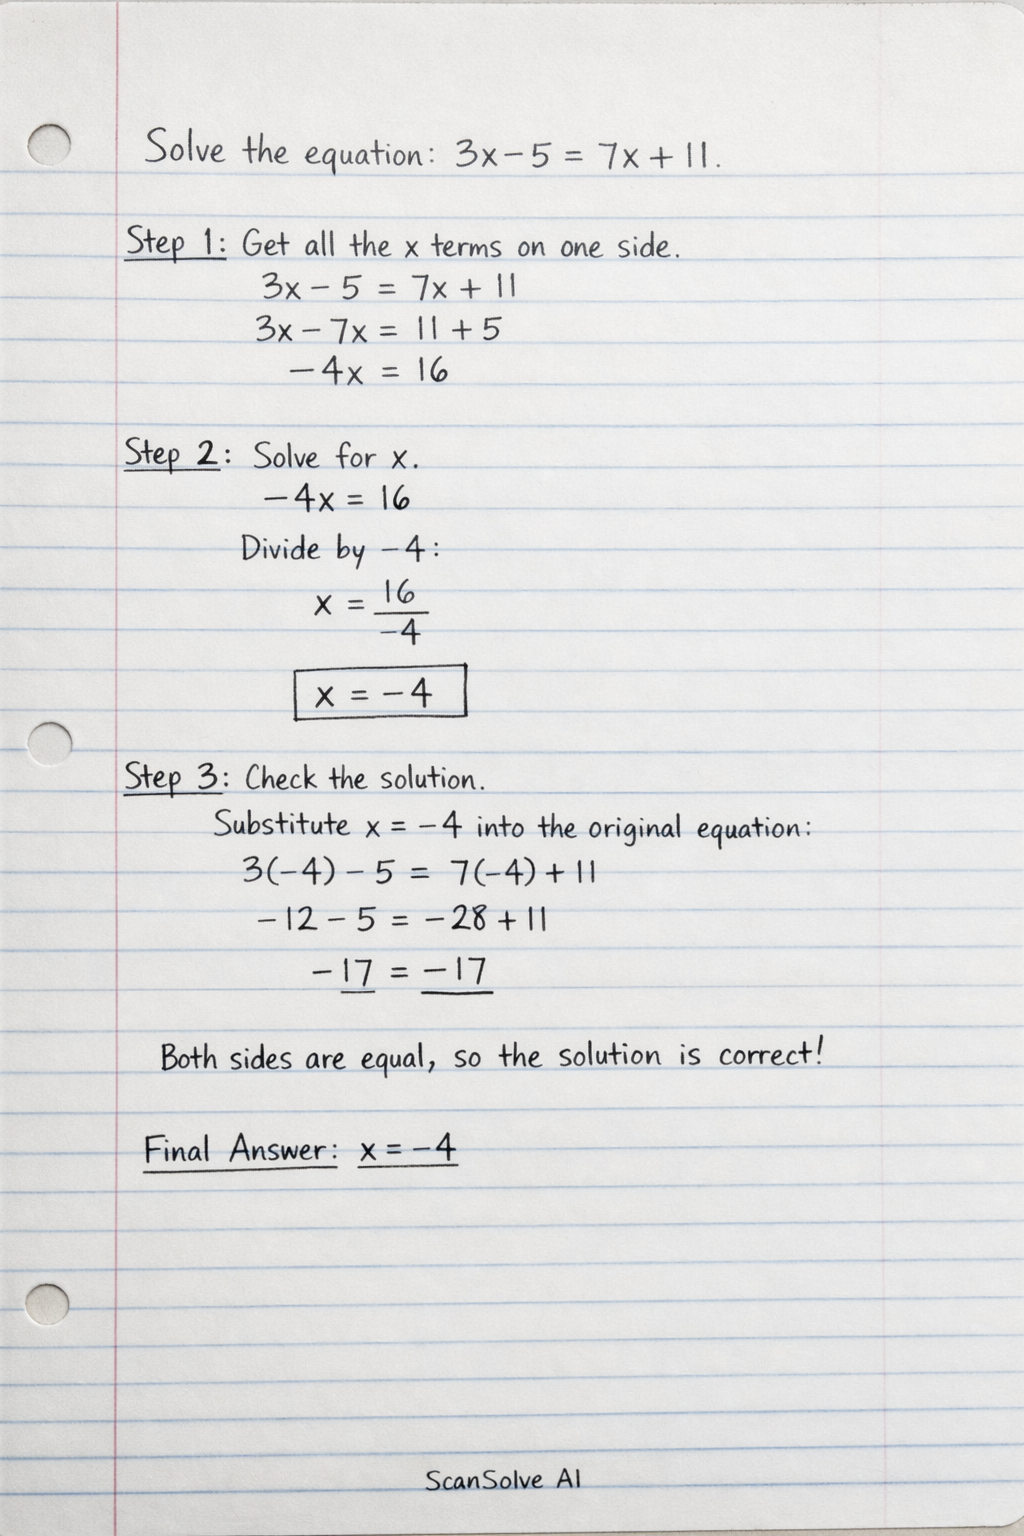 Solve the equation: 3x - 5 = 7x + 11.
Step 1: Get all the x terms on one side.
3x - 5 = 7x + 11
3x - 7x = 11 + 5
-4x = 16
Step 2: Solve for x.
-4x = 16
Divide by -4:
x = 16/-4
x = -4
Step 3: Check the solution.
Substitute x = -4 into the original equation:
3(-4) - 5 = 7(-4) + 11
-12 - 5 = -28 + 11
-17 = -17
Both sides are equal, so the solution is correct!
Final Answer: x = -4
ScanSolve AI